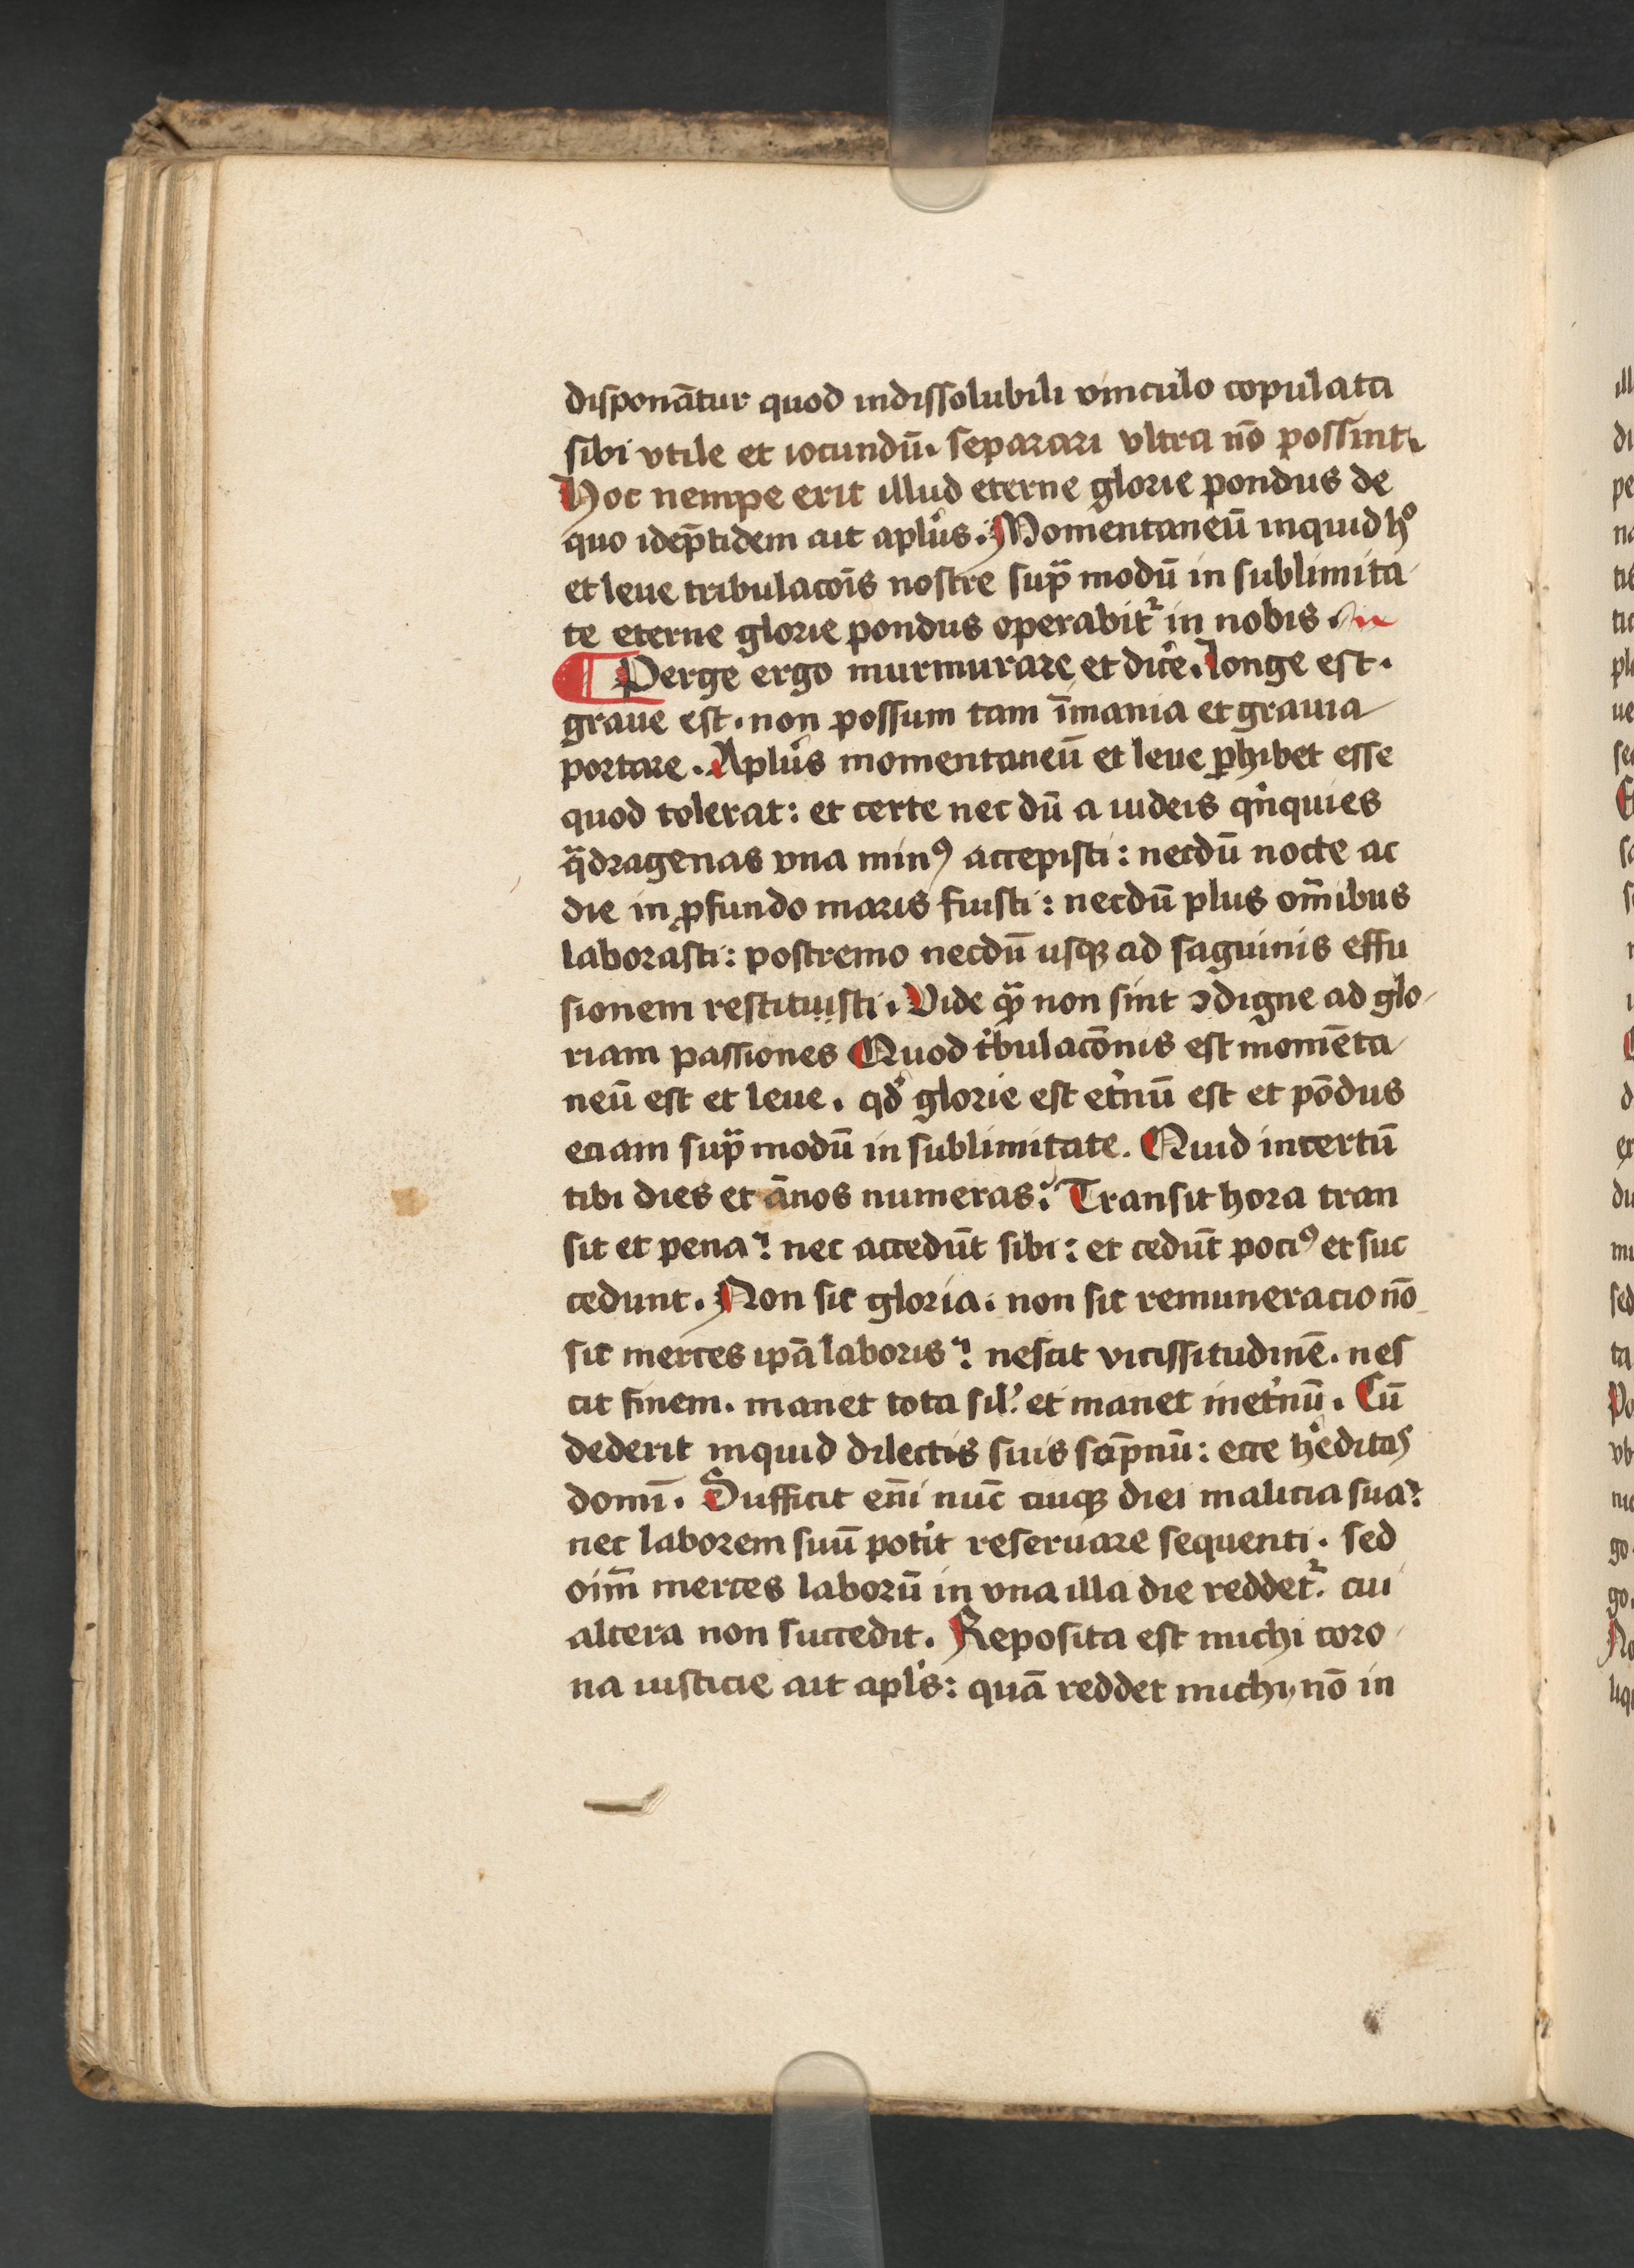 disponātur quod indissolubili vinculo copulata
sibi vtile et iocundū. separari vltra nō possint.
Hoc nempe erit illud eterne glorie pondus de
quo idēptidem ait aplūs. Momentaneū inquid hͦ
et leue tribulacōis nostre supͣ modū in sublimita
te eterne glorie pondus operabitͬ in nobis.
¶ Perge ergo murmurare et dic̓e. longe est.
graue est. non possum tam īmania et grauia
portare. Aplūs momentaneū et leue ꝑhibet esse
quod tolerat: et certe nec dū a iudeis qͥnquies
qͣdragenas vna minꝰ accepisti: necdū nocte ac
die in ꝓfundo maris fuisti: necdū plus om̄ibus
laborasti: postremo necdū usqꝫ ad saguinis effu
sionem restituisti. Vide qͣꝫ non sint ↄdigne ad glo
riam passiones Quod tͥbulacōnis est momēta
neū est et leue. qđ glorie est et̓nū est et pōdus
eciam supͣ modū in sublimitate. Quid incertū
tibi dies et ānos numeras? Transit hora tran
sit et pena? nec accedūt sibi: et cedūt pociꝰ et suc
cedunt. Non sic gloria. non sic remuneracio nō
sic merces ipā laboris? nescit vicissitudinē. nes
cit finem. manet tota sil̓. et manet inet̓nū. Cū
dederit inquid dilectis suis sōpnū: ecce h̓editas
domī. Sufficit en̄i nūc cuiqꝫ diei malicia sua?
nec laborem suū pot̓it reseruare sequenti. sed
oīm̄ merces laborū in vna illa die reddetͬ. cui
altera non succedit. Reposita est michi coro
na iusticie ait apl̓s: quā reddet michi, nō in